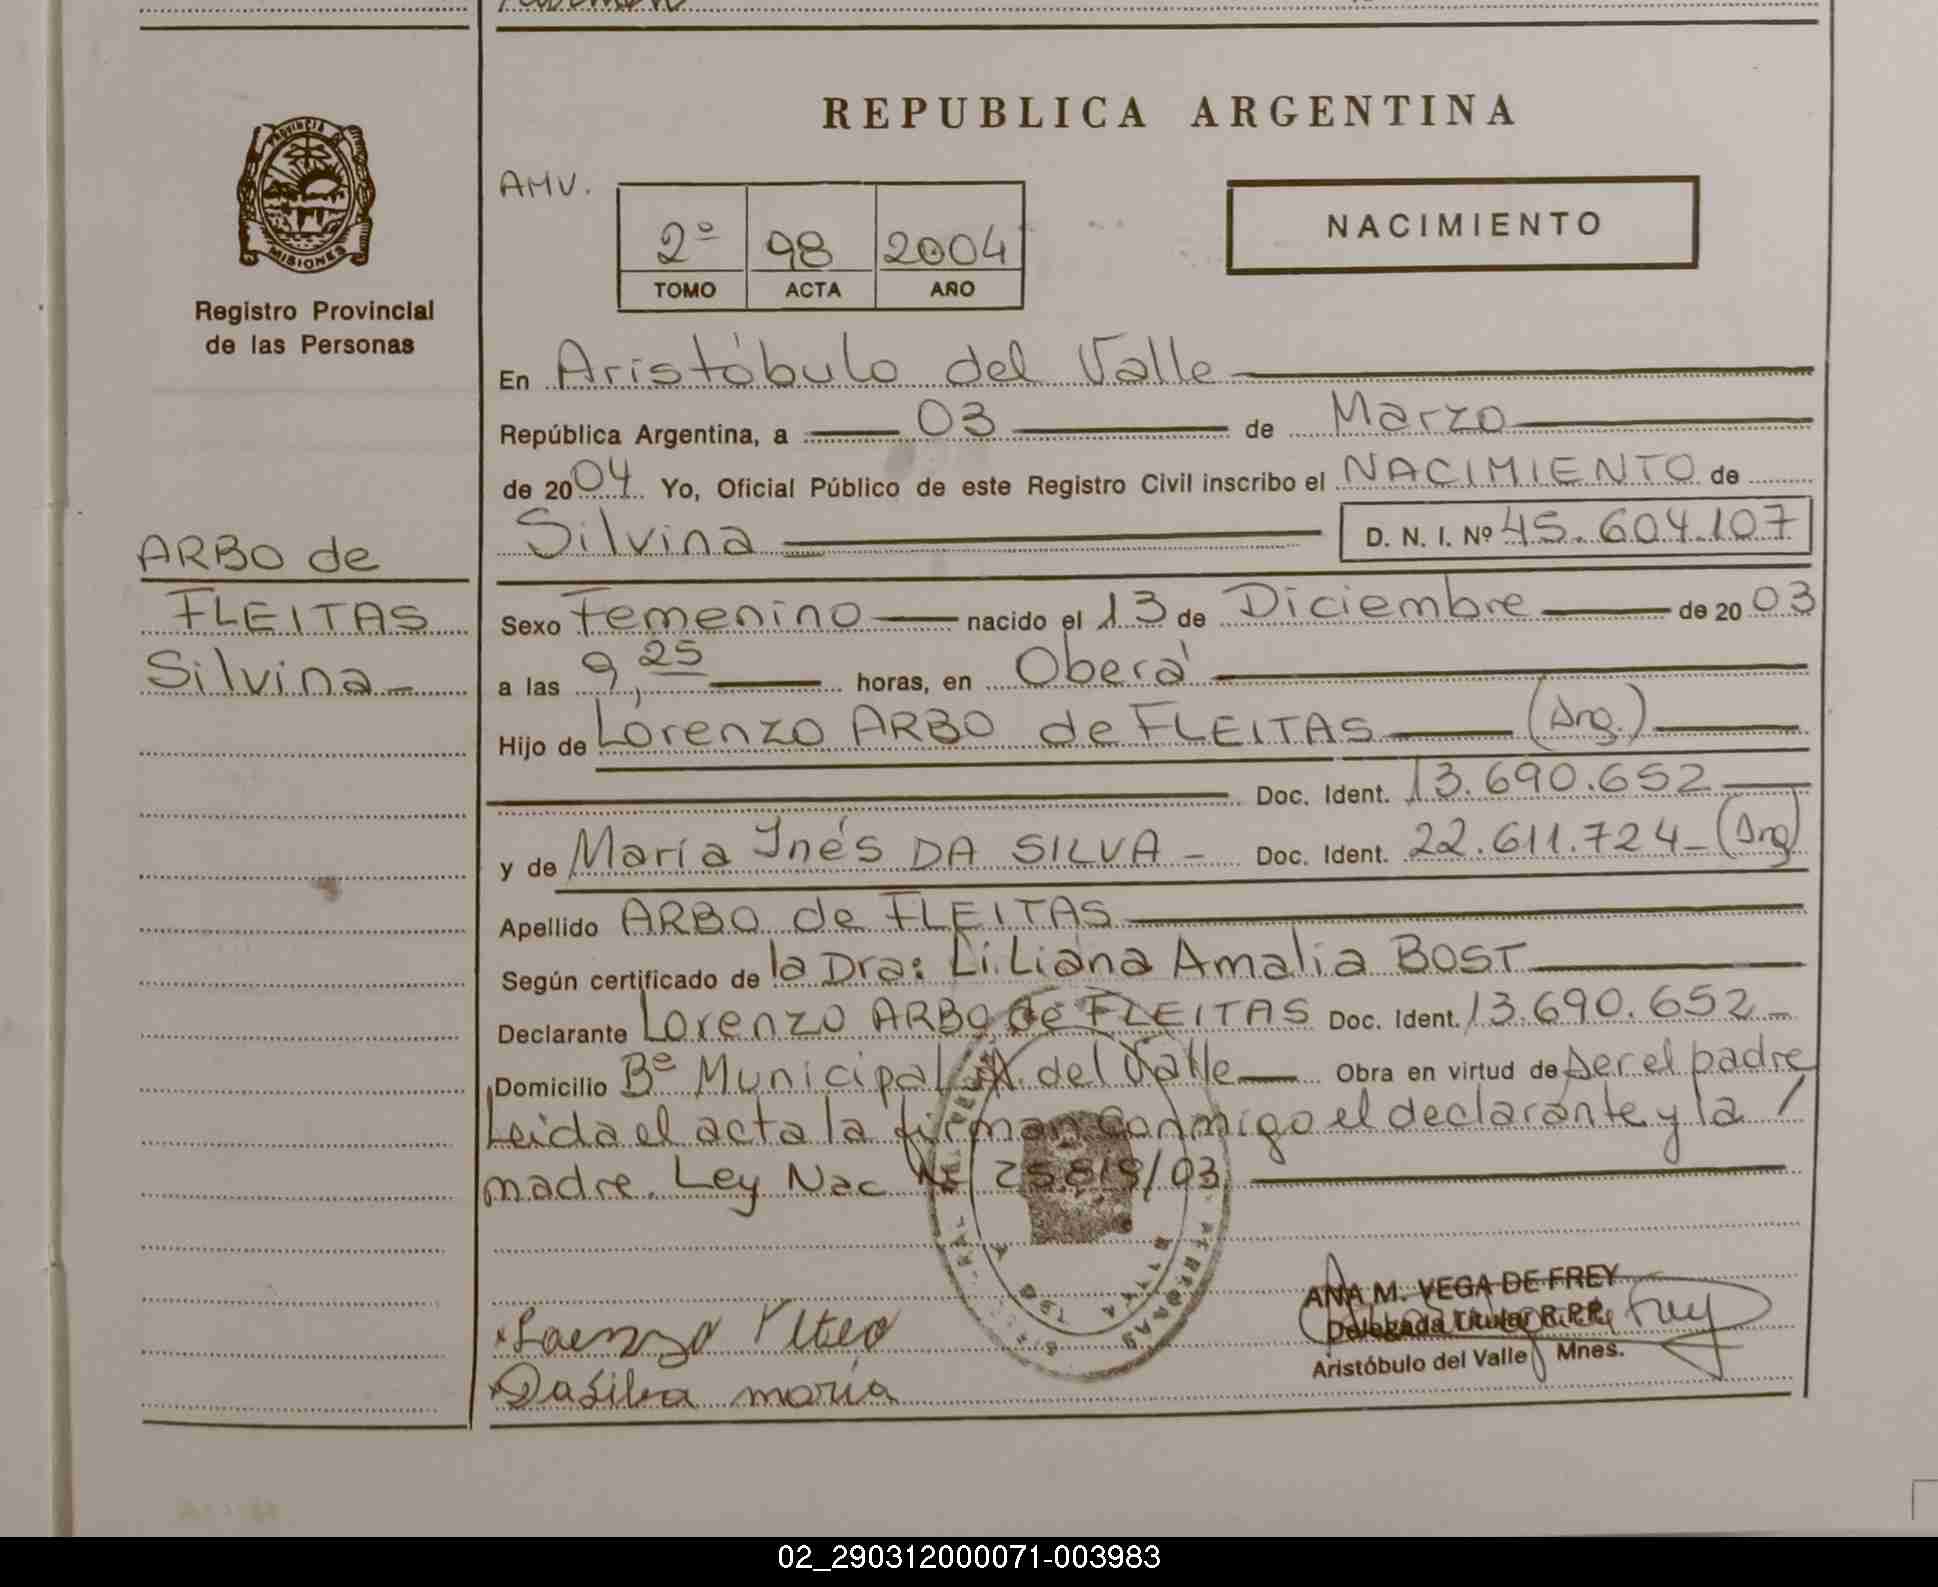 REPUBLICA ARGENTINA
PROVINCIA DE
MISIONES
Registro Provincial
de las Personas
AMV.
2º 98 2004
TOMO ACTA AÑO
NACIMIENTO
En Aristóbulo del Valle
República Argentina, a 03 de Marzo
de 2004 Yo, Oficial Público de este Registro Civil inscribo el NACIMIENTO de
Silvina D. N. I. Nº 45.604.107
ARBO de
FLEITAS
Silvina
Sexo Femenino nacido el 13 de Diciembre de 20 03
a las 9,25 horas, en Oberá
Hijo de Lorenzo ARBO de FLEITAS (Arg.)
Doc. Ident. 13.690.652
y de María Inés DA SILVA - Doc. Ident. 22.611.724 - (Arg)
Apellido ARBO de FLEITAS
Según certificado de la Dra: Liliana Amalia BOST
Declarante Lorenzo ARBO de FLEITAS Doc. Ident. 13.690.652 -
Domicilio Bº Municipal A. del Valle Obra en virtud de ser el padre
Leida el acta la firman conmigo el declarante y la /
madre. Ley Nac Nº 25819/03
ANA M. VEGA DE FREY
Delegada Titular R.P.P.
Aristóbulo del Valle Mnes.
Dasilva maria
02_290312000071-003983